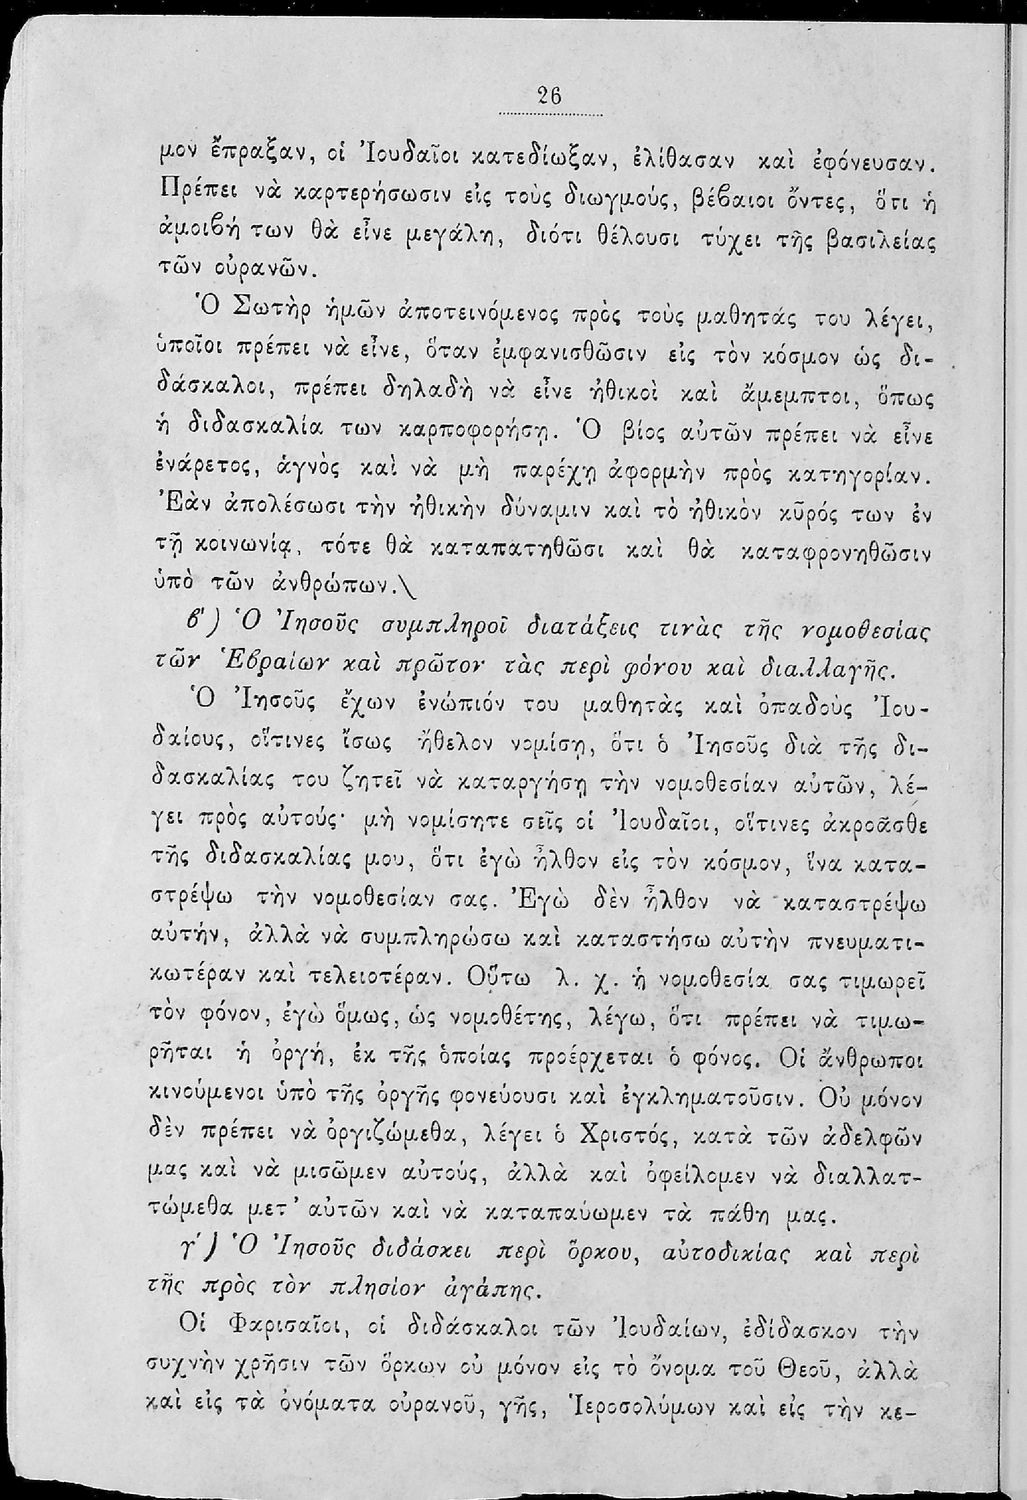 26
μον ἔπραξαν, οἱ Ἰουδαῖοι κατεδίωξαν, ἐλίθασαν καὶ ἐφόνευσαν.
Πρέπει νὰ καρτερήσωσιν εἰς τοὺς διωγμούς, βέβαιοι ὄντες, ὅτι ἡ
ἀμοιβή των θὰ εἶνε μεγάλη, διότι θέλουσι τύχει τῆς βασιλείας
τῶν οὐρανῶν.
Ὁ Σωτὴρ ἡμῶν ἀποτεινόμενος πρὸς τοὺς μαθητάς του λέγει,
ὁποῖοι πρέπει νὰ εἶνε, ὅταν ἐμφανισθῶσιν εἰς τὸν κόσμον ὡς δι-
δάσκαλοι, πρέπει δηλαδὴ νὰ εἶνε ἠθικοὶ καὶ ἄμεμπτοι, ὅπως
ἡ διδασκαλία των καρποφορήσῃ. Ὁ βίος αὐτῶν πρέπει νὰ εἶνε
ἐνάρετος, ἁγνὸς καὶ νὰ μὴ παρέχῃ ἀφορμὴν πρὸς κατηγορίαν.
Ἐὰν ἀπολέσωσι τὴν ἠθικὴν δύναμιν καὶ τὸ ἠθικὸν κῦρός των ἐν
τῇ κοινωνίᾳ, τότε θὰ καταπατηθῶσι καὶ θὰ καταφρονηθῶσιν
ὑπὸ τῶν ἀνθρώπων.\
β΄) Ὁ Ἰησοῦς συμπληροῖ διατάξεις τινὰς τῆς νομοθεσίας
τῶν Ἑβραίων καὶ πρῶτον τὰς περὶ φόνου καὶ διαλλαγῆς.
Ὁ Ἰησοῦς ἔχων ἐνώπιόν του μαθητὰς καὶ ὀπαδοὺς Ἰου-
δαίους, οἵτινες ἴσως ἤθελον νομίσῃ, ὅτι ὁ Ἰησοῦς διὰ τῆς δι-
δασκαλίας του ζητεῖ νὰ καταργήσῃ τὴν νομοθεσίαν αὐτῶν, λέ-
γει πρὸς αὐτούς· μὴ νομίσητε σεῖς οἱ Ἰουδαῖοι, οἵτινες ἀκροᾶσθε
τῆς διδασκαλίας μου, ὅτι ἐγὼ ἦλθον εἰς τὸν κόσμον, ἵνα κατα-
στρέψω τὴν νομοθεσίαν σας. Ἐγὼ δὲν ἦλθον νὰ καταστρέψω
αὐτήν, ἀλλὰ νὰ συμπληρώσω καὶ καταστήσω αὐτὴν πνευματι-
κωτέραν καὶ τελειοτέραν. Οὕτω λ. χ. ἡ νομοθεσία σας τιμωρεῖ
τὸν φόνον, ἐγὼ ὅμως, ὡς νομοθέτης, λέγω, ὅτι πρέπει νὰ τιμω-
ρῆται ἡ ὀργή, ἐκ τῆς ὁποίας προέρχεται ὁ φόνος. Οἱ ἄνθρωποι
κινούμενοι ὑπὸ τῆς ὀργῆς φονεύουσι καὶ ἐγκληματοῦσιν. Οὐ μόνον
δὲν πρέπει νὰ ὀργιζώμεθα, λέγει ὁ Χριστός, κατὰ τῶν ἀδελφῶν
μας καὶ νὰ μισῶμεν αὐτούς, ἀλλὰ καὶ ὀφείλομεν νὰ διαλλατ-
τώμεθα μετ’ αὐτῶν καὶ νὰ καταπαύωμεν τὰ πάθη μας.
γ΄) Ὁ Ἰησοῦς διδάσκει περὶ ὅρκου, αὐτοδικίας καὶ περὶ
τῆς πρὸς τὸν πλησίον ἀγάπης.
Οἱ Φαρισαῖοι, οἱ διδάσκαλοι τῶν Ἰουδαίων, ἐδίδασκον τὴν
συχνὴν χρῆσιν τῶν ὅρκων οὐ μόνον εἰς τὸ ὄνομα τοῦ Θεοῦ, ἀλλὰ
καὶ εἰς τὰ ὀνόματα οὐρανοῦ, γῆς, Ἱεροσολύμων καὶ εἰς τὴν κε-